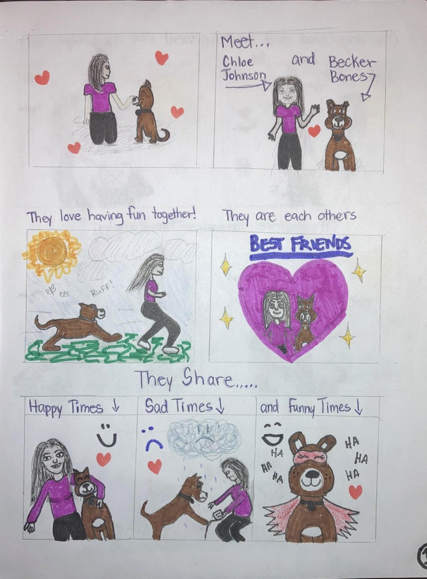 Meet...
Chloe Johnson
and
Becker Bones
They love having fun together!
They are each others
BEST FRIENDS
RUFF!
They Share.....
Happy Times
Sad Times
and Funny Times
HA
HA
HA
HA
HA
HA